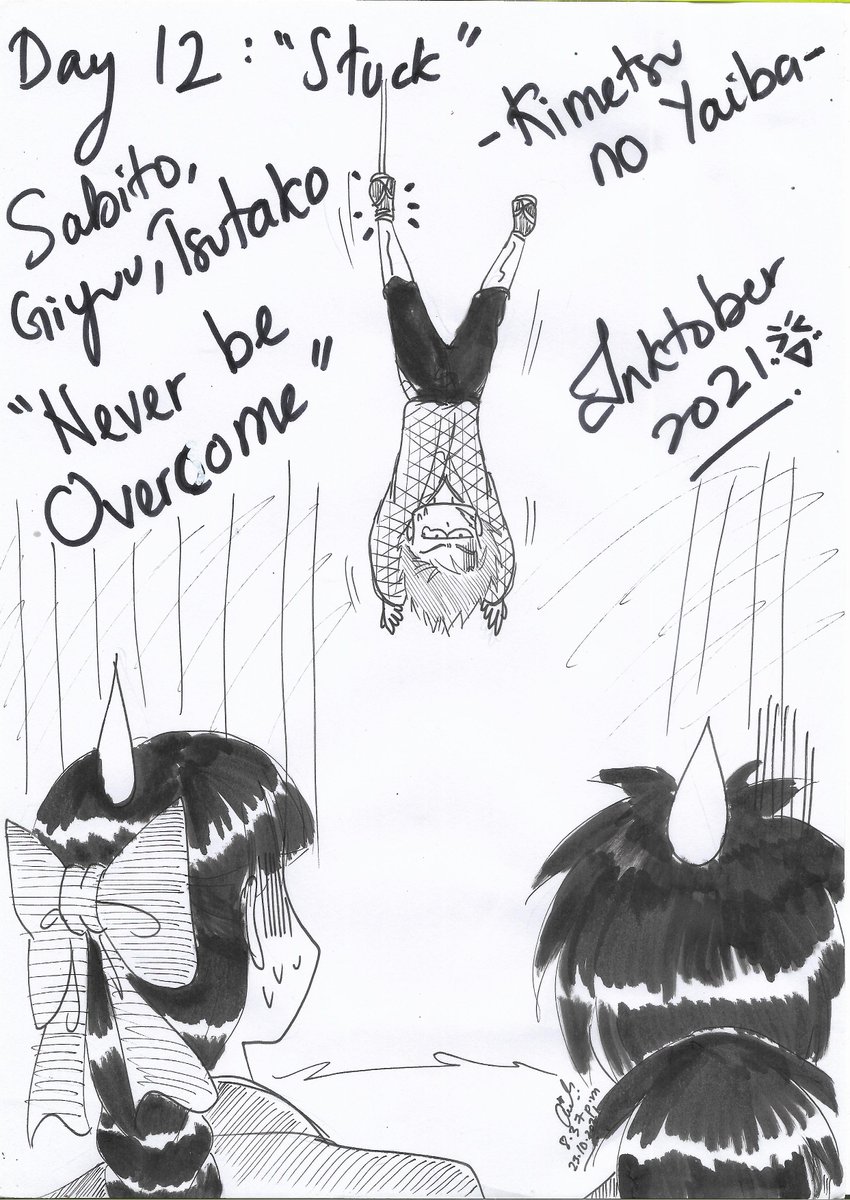 Day 12 : "Stuck"
-Kimetsu
no Yaiba-
Sabito,
Giyuu, Tsutako
"Never be
Overcome"
Inktober
2021.
8.37 p.m